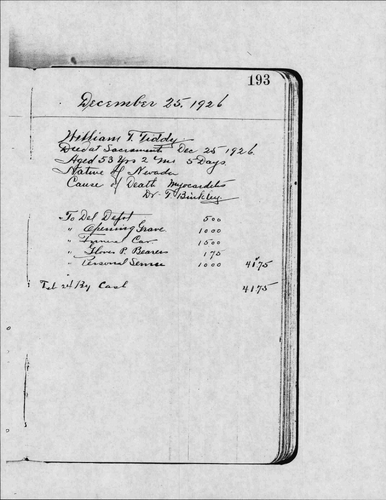 193
December 25, 1926
William T. Tiddy
Died at Sacramento Dec 25 1926
Aged 53 Yrs 2 Ms 5 Days
Native of Nevada
Cause of Death Myocarditis
Dr. T Binkley
To Del Depot 500
" Opening Grave 1000
" Funeral Car 1500
" Gloves P. Bearers 175
" Personal Service 1000 4175
By Cash 4175